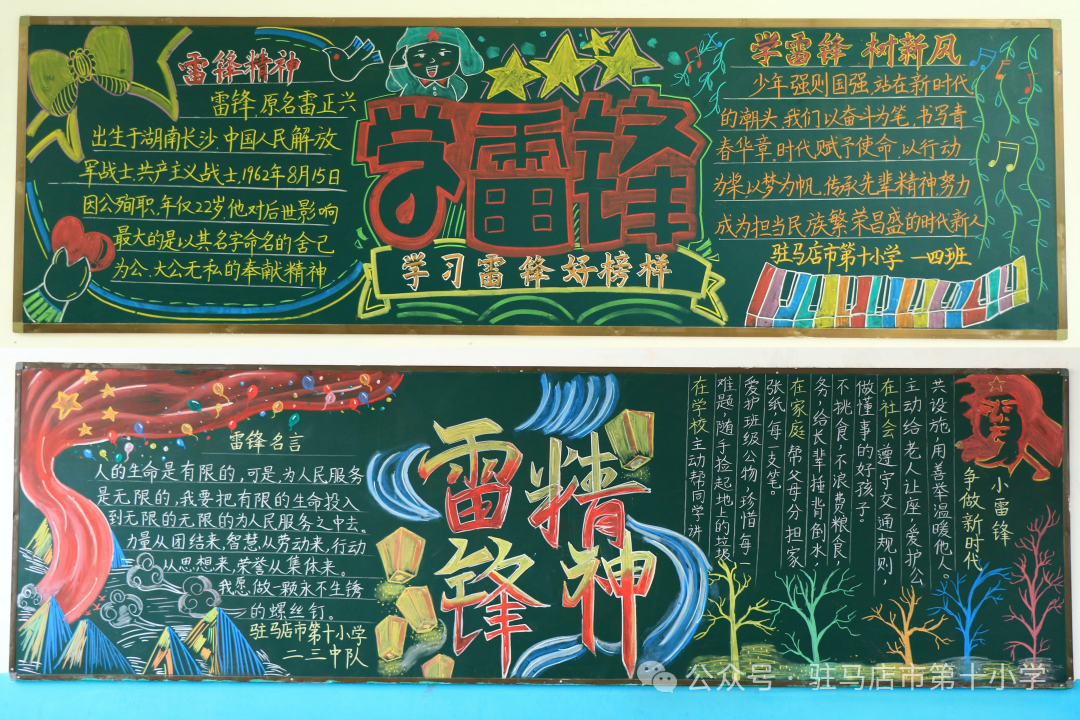 雷锋精神
雷锋,原名雷正兴
出生于湖南长沙.中国人民解放
军战士,共产主义战士,1962年8月15日
因公殉职,年仅22岁,他对后世影响
最大的是以其名字命名的舍己
为公.大公无私的奉献精神
学雷锋
学习雷锋好榜样
学雷锋 树新风
少年强则国强.站在新时代
的潮头,我们以奋斗为笔,书写青
春华章.时代赋予使命,以行动
为桨,以梦为帆,传承先辈精神努力
成为担当民族繁荣昌盛的时代新人
驻马店市第十小学 一四班
雷锋名言
人的生命是有限的,可是,为人民服务
是无限的,我要把有限的生命投入
到无限的无限的为人民服务之中去。
力量从团结来,智慧从劳动来,行动
从思想来,荣誉从集体来。
我愿做一颗永不生锈
的螺丝钉。
驻马店市第十小学
二三中队
雷锋
精神
小雷锋
争做新时代
共设施,用善举温暖他人。
主动给老人让座,爱护公
在社会遵守交通规则,
做懂事的好孩子。
不挑食,不浪费粮食,
务,给长辈捶背倒水,
在家庭帮父母分担家
张纸,每一支笔。
爱护班级公物,珍惜每一
难题,随手捡起地上的垃圾
在学校主动帮同学讲
公众号·驻马店市第十小学